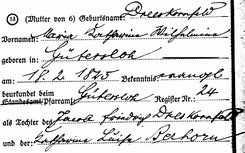 (13) (Mutter von 6) Geburtsname: Dreeskornfeld
Vornamen: Maria Katharina Wilhelmina
geboren in: Gütersloh
am 18.2.1845 Bekenntnis: evangl
beurkundet beim Standesamt/Pfarramt: Gütersloh Register Nr. 24
als Tochter des Jacob Friedrich Dreeskornfeld
und der Katharina Luise Beckorn